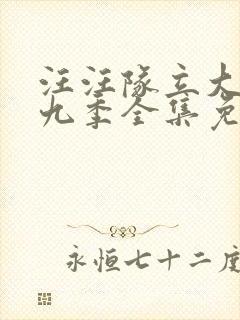 汪汪队立大
九季全集免
永恒七十二度